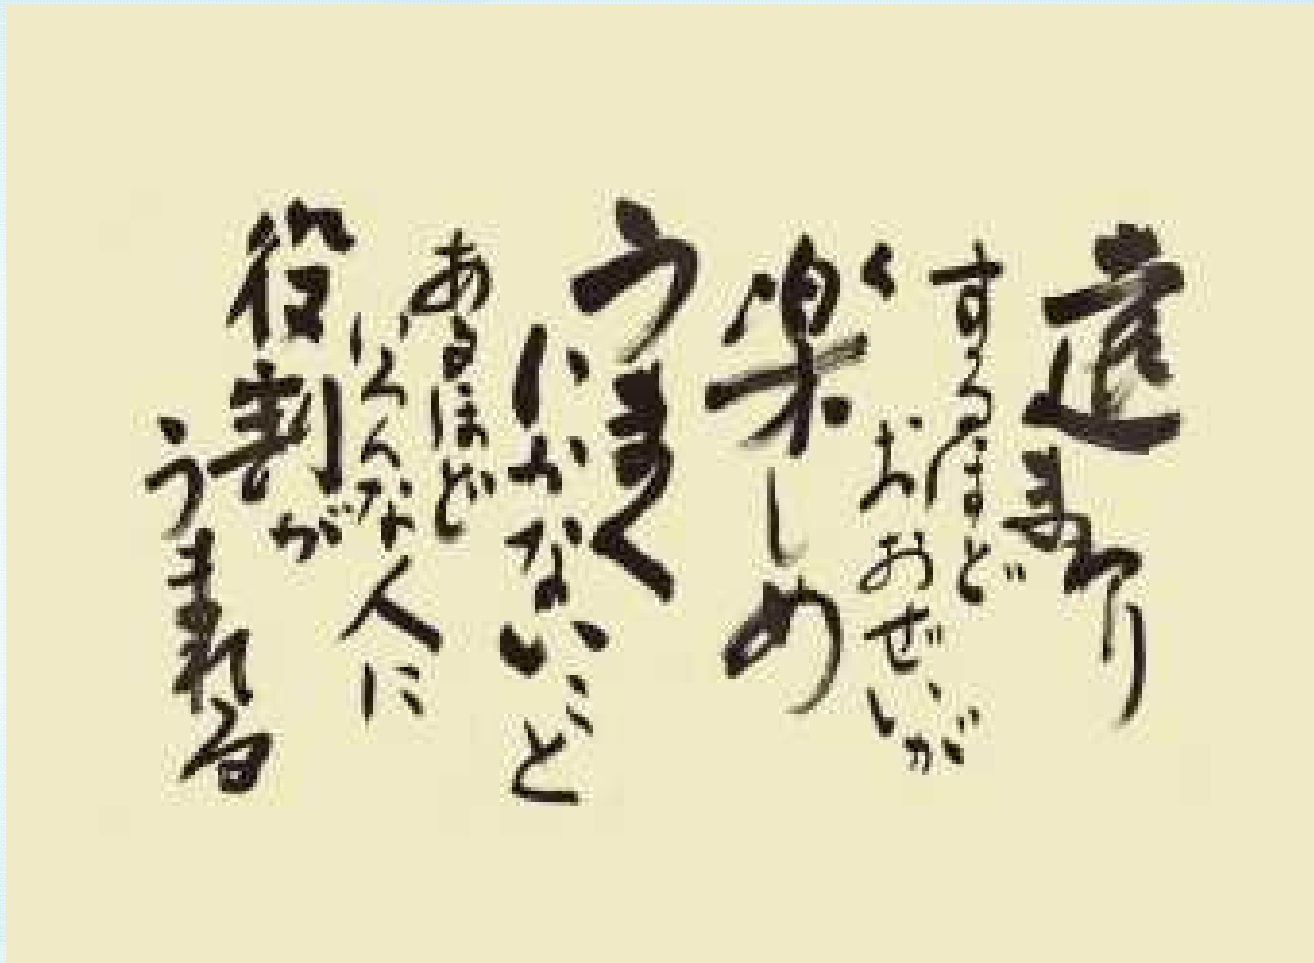 遠まわり
するほど
おおぜいが
楽しめ
うまく
いかないこと
あるほど
いろんな人に
役割が
うまれる